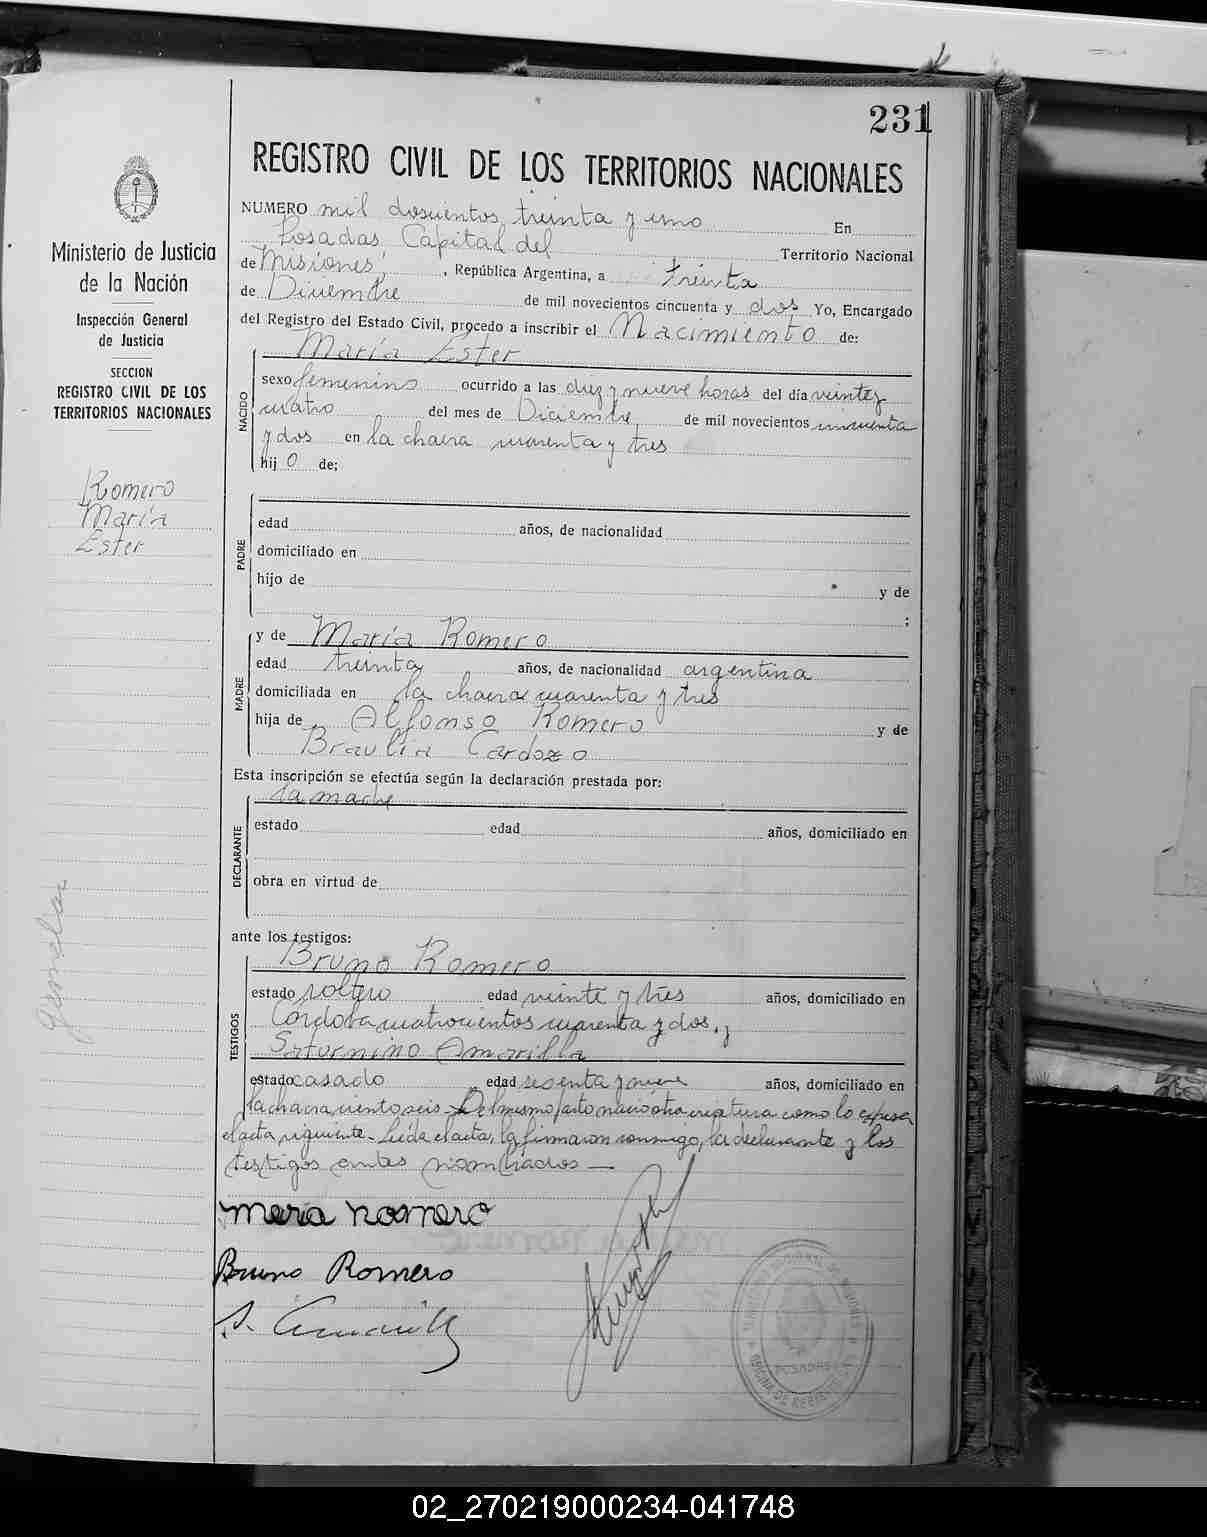 231
REGISTRO CIVIL DE LOS TERRITORIOS NACIONALES
Ministerio de Justicia
de la Nación
Inspección General
de Justicia
SECCION
REGISTRO CIVIL DE LOS
TERRITORIOS NACIONALES
Romero
María
Ester
Gemelar
NUMERO mil doscientos treinta y uno En
Posadas, Capital del Territorio Nacional
de Misiones, , República Argentina, a treinta
de Diciembre de mil novecientos cincuenta y dos Yo, Encargado
del Registro del Estado Civil, procedo a inscribir el Nacimiento de:
María Ester
NACIDO
sexo femenino ocurrido a las diez y nueve horas del día veinte y
cuatro del mes de Diciembre, de mil novecientos cincuenta
y dos en la chacra cuarenta y tres
hij o de;
PADRE
edad años, de nacionalidad
domiciliado en
hijo de y de
;
MADRE
y de María Romero
edad treinta años, de nacionalidad argentina
domiciliada en la chacra cuarenta y tres
hija de Alfonso Romero y de
Braulia Cardozo
Esta inscripción se efectúa según la declaración prestada por:
la madre
DECLARANTE
estado edad años, domiciliado en
obra en virtud de
ante los testigos:
TESTIGOS
Bruno Romero
estado soltero edad veinte y tres años, domiciliado en
Córdova cuatrocientos cuarenta y dos, y
Saturnino Amarilla
estado casado edad sesenta y nueve años, domiciliado en
la chacra ciento seis - Del mismo parto nació otra criatura como lo expresa
el acta siguiente - Leída el acta, la firmaron conmigo, la declarante y los
testigos antes nombrados —
meria romero
Bruno Romero
S. Amarilla
POSADAS
02_270219000234-041748